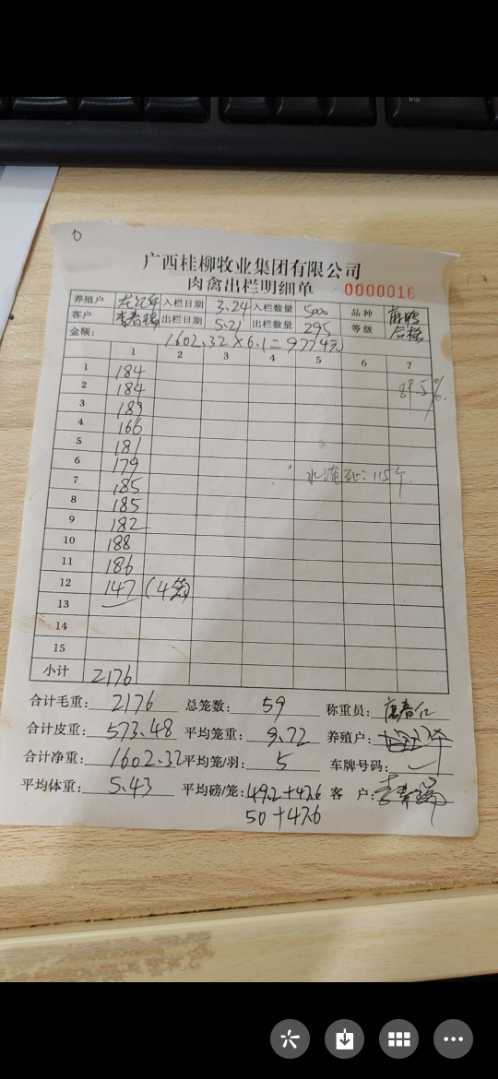 广西桂柳牧业集团有限公司
肉禽出栏明细单 0000016
养殖户 入栏日期 3.24 入栏数量 5000 品种 麻鸭
客户 出栏日期 5.21 出栏数量 295 等级
金额: 1602.32×6.1=9774元
1 2 3 4 5 6 7
1 184
2 184 89.5%
3 189
4 166
5 181
6 179
7 185 115个
8 185
9 182
10 188
11 186
12 147 (4笼)
13
14
15
小计 2176
合计毛重: 2176 总笼数: 59 称重员:
合计皮重: 573.48 平均笼重: 9.72 养殖户:
合计净重: 1602.32 平均笼/羽: 5 车牌号码:
平均体重: 5.43 平均磅/笼: 49.2+47.6 客 户:
50+47.6